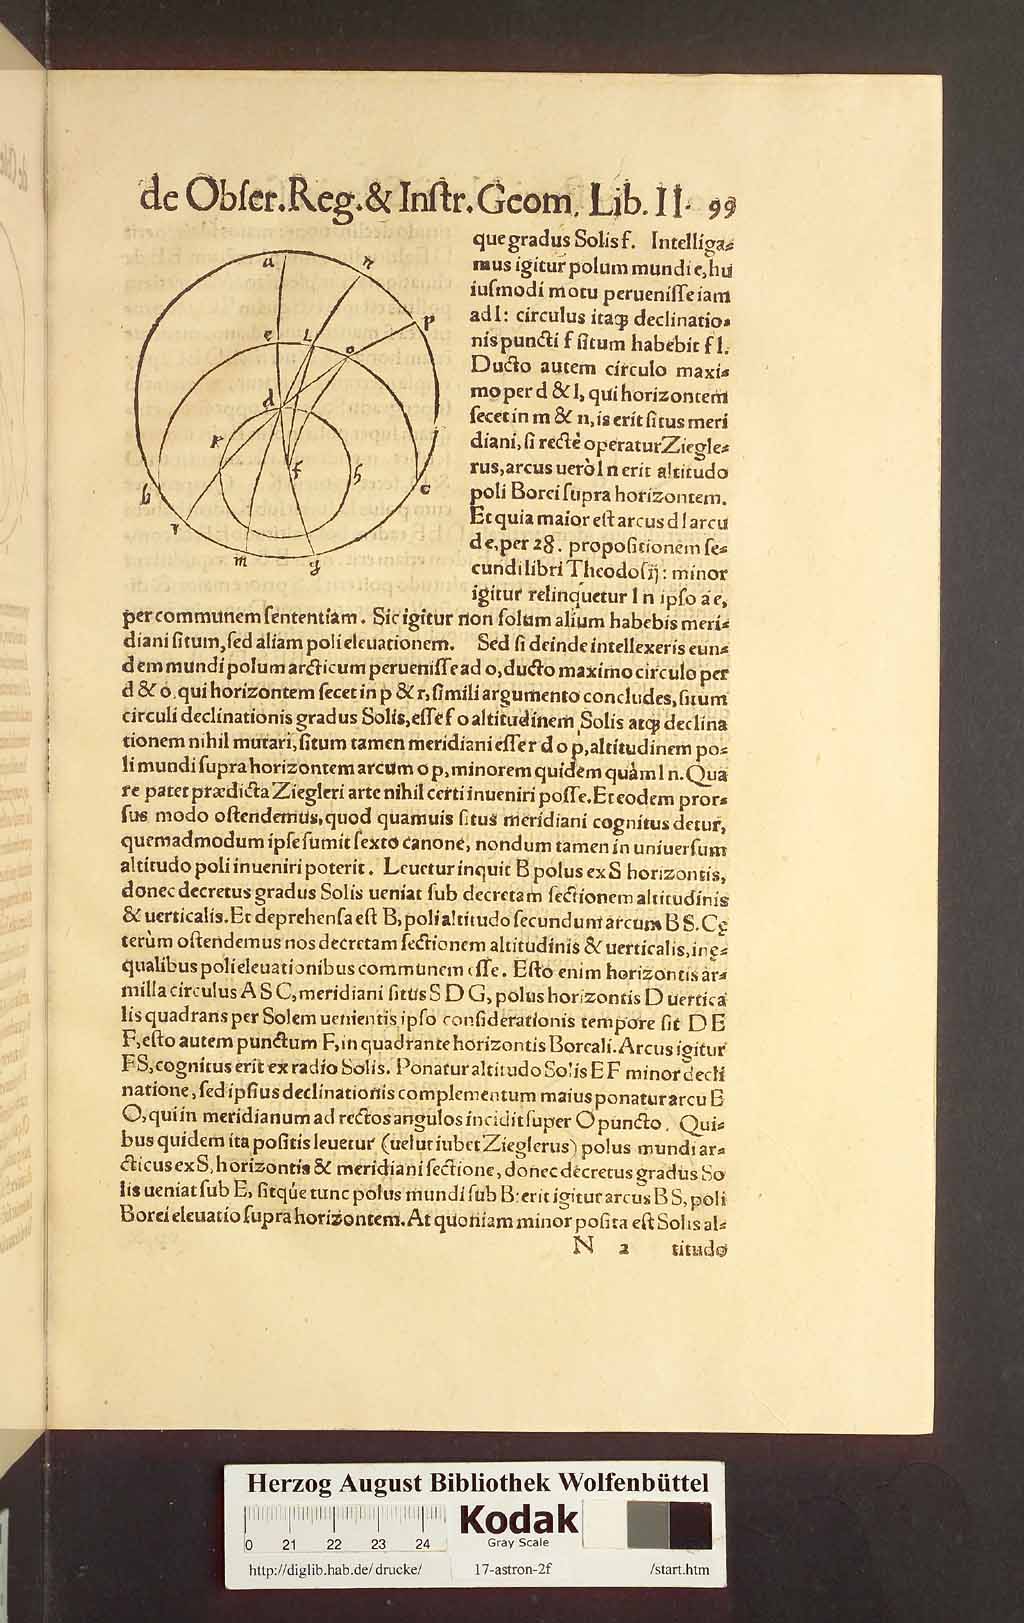 de Obſer. Reg. & Inſtr. Geom. Lib. II. 99
que gradus Solis f. Intelliga⸗
mus igitur polum mundi e, hu
iuſmodi motu perueniſſe iam
ad l: circulus itaqꝫ declinatio⸗
nis puncti f ſitum habebit f l.
Ducto autem circulo maxi⸗
mo per d & l, qui horizontem
ſecet in m & n, is erit ſitus meri
diani, ſi rectè operatur Ziegle⸗
rus, arcus uerò l n erit altitudo
poli Borei ſupra horizontem.
Et quia maior eſt arcus d l arcu
d e, per 28. propoſitionem ſe⸗
cundi libri Theodoſij: minor
igitur relinquetur l n ipſo a e,
per communem ſententiam. Sic igitur non ſolum alium habebis meri⸗
diani ſitum, ſed aliam poli eleuationem. Sed ſi deinde intellexeris eun⸗
dem mundi polum arcticum perueniſſe ad o, ducto maximo circulo per
d & o, qui horizontem ſecet in p & r, ſimili argumento concludes, ſitum
circuli declinationis gradus Solis, eſſe f o altitudinem Solis atqꝫ declina
tionem nihil mutari, ſitum tamen meridiani eſſe r d o p, altitudinem po⸗
li mundi ſupra horizontem arcum o p, minorem quidem quàm l n. Qua
re patet prædicta Ziegleri arte nihil certi inueniri poſſe. Et eodem pror⸗
ſus modo oſtendemus, quod quamuis ſitus meridiani cognitus detur,
quemadmodum ipſe ſumit ſexto canone, nondum tamen in uniuerſum
altitudo poli inueniri poterit. Leuetur inquit B polus ex S horizontis,
donec decretus gradus Solis ueniat ſub decretam ſectionem altitudinis
& uerticalis. Et deprehenſa eſt B, poli altitudo ſecundum arcum B S. Cę
terùm oſtendemus nos decretam ſectionem altitudinis & uerticalis, inę⸗
qualibus poli eleuationibus communem eſſe. Eſto enim horizontis ar⸗
milla circulus A S C, meridiani ſitus S D G, polus horizontis D uertica
lis quadrans per Solem uenientis ipſo conſiderationis tempore ſit D E
F, eſto autem punctum F, in quadrante horizontis Boreali. Arcus igitur
F S, cognitus erit ex radio Solis. Ponatur altitudo Solis E F minor decli
natione, ſed ipſius declinationis complementum maius ponatur arcu E
O, qui in meridianum ad rectos angulos incidit ſuper O puncto. Qui⸗
bus quidem ita poſitis leuetur (uelut iubet Zieglerus) polus mundi ar⸗
cticus ex S, horizontis & meridiani ſectione, donec decretus gradus So
lis ueniat ſub E, ſitque tunc polus mundi ſub B: erit igitur arcus B S, poli
Borei eleuatio ſupra horizontem. At quoniam minor poſita eſt Solis al⸗
N 2 titudo
a n
p
e l o
d i
k f h
b c
r m g
Herzog August Bibliothek Wolfenbüttel
Kodak
Gray Scale
0 21 22 23 24
http://diglib.hab.de/drucke/ 17-astron-2f /start.htm